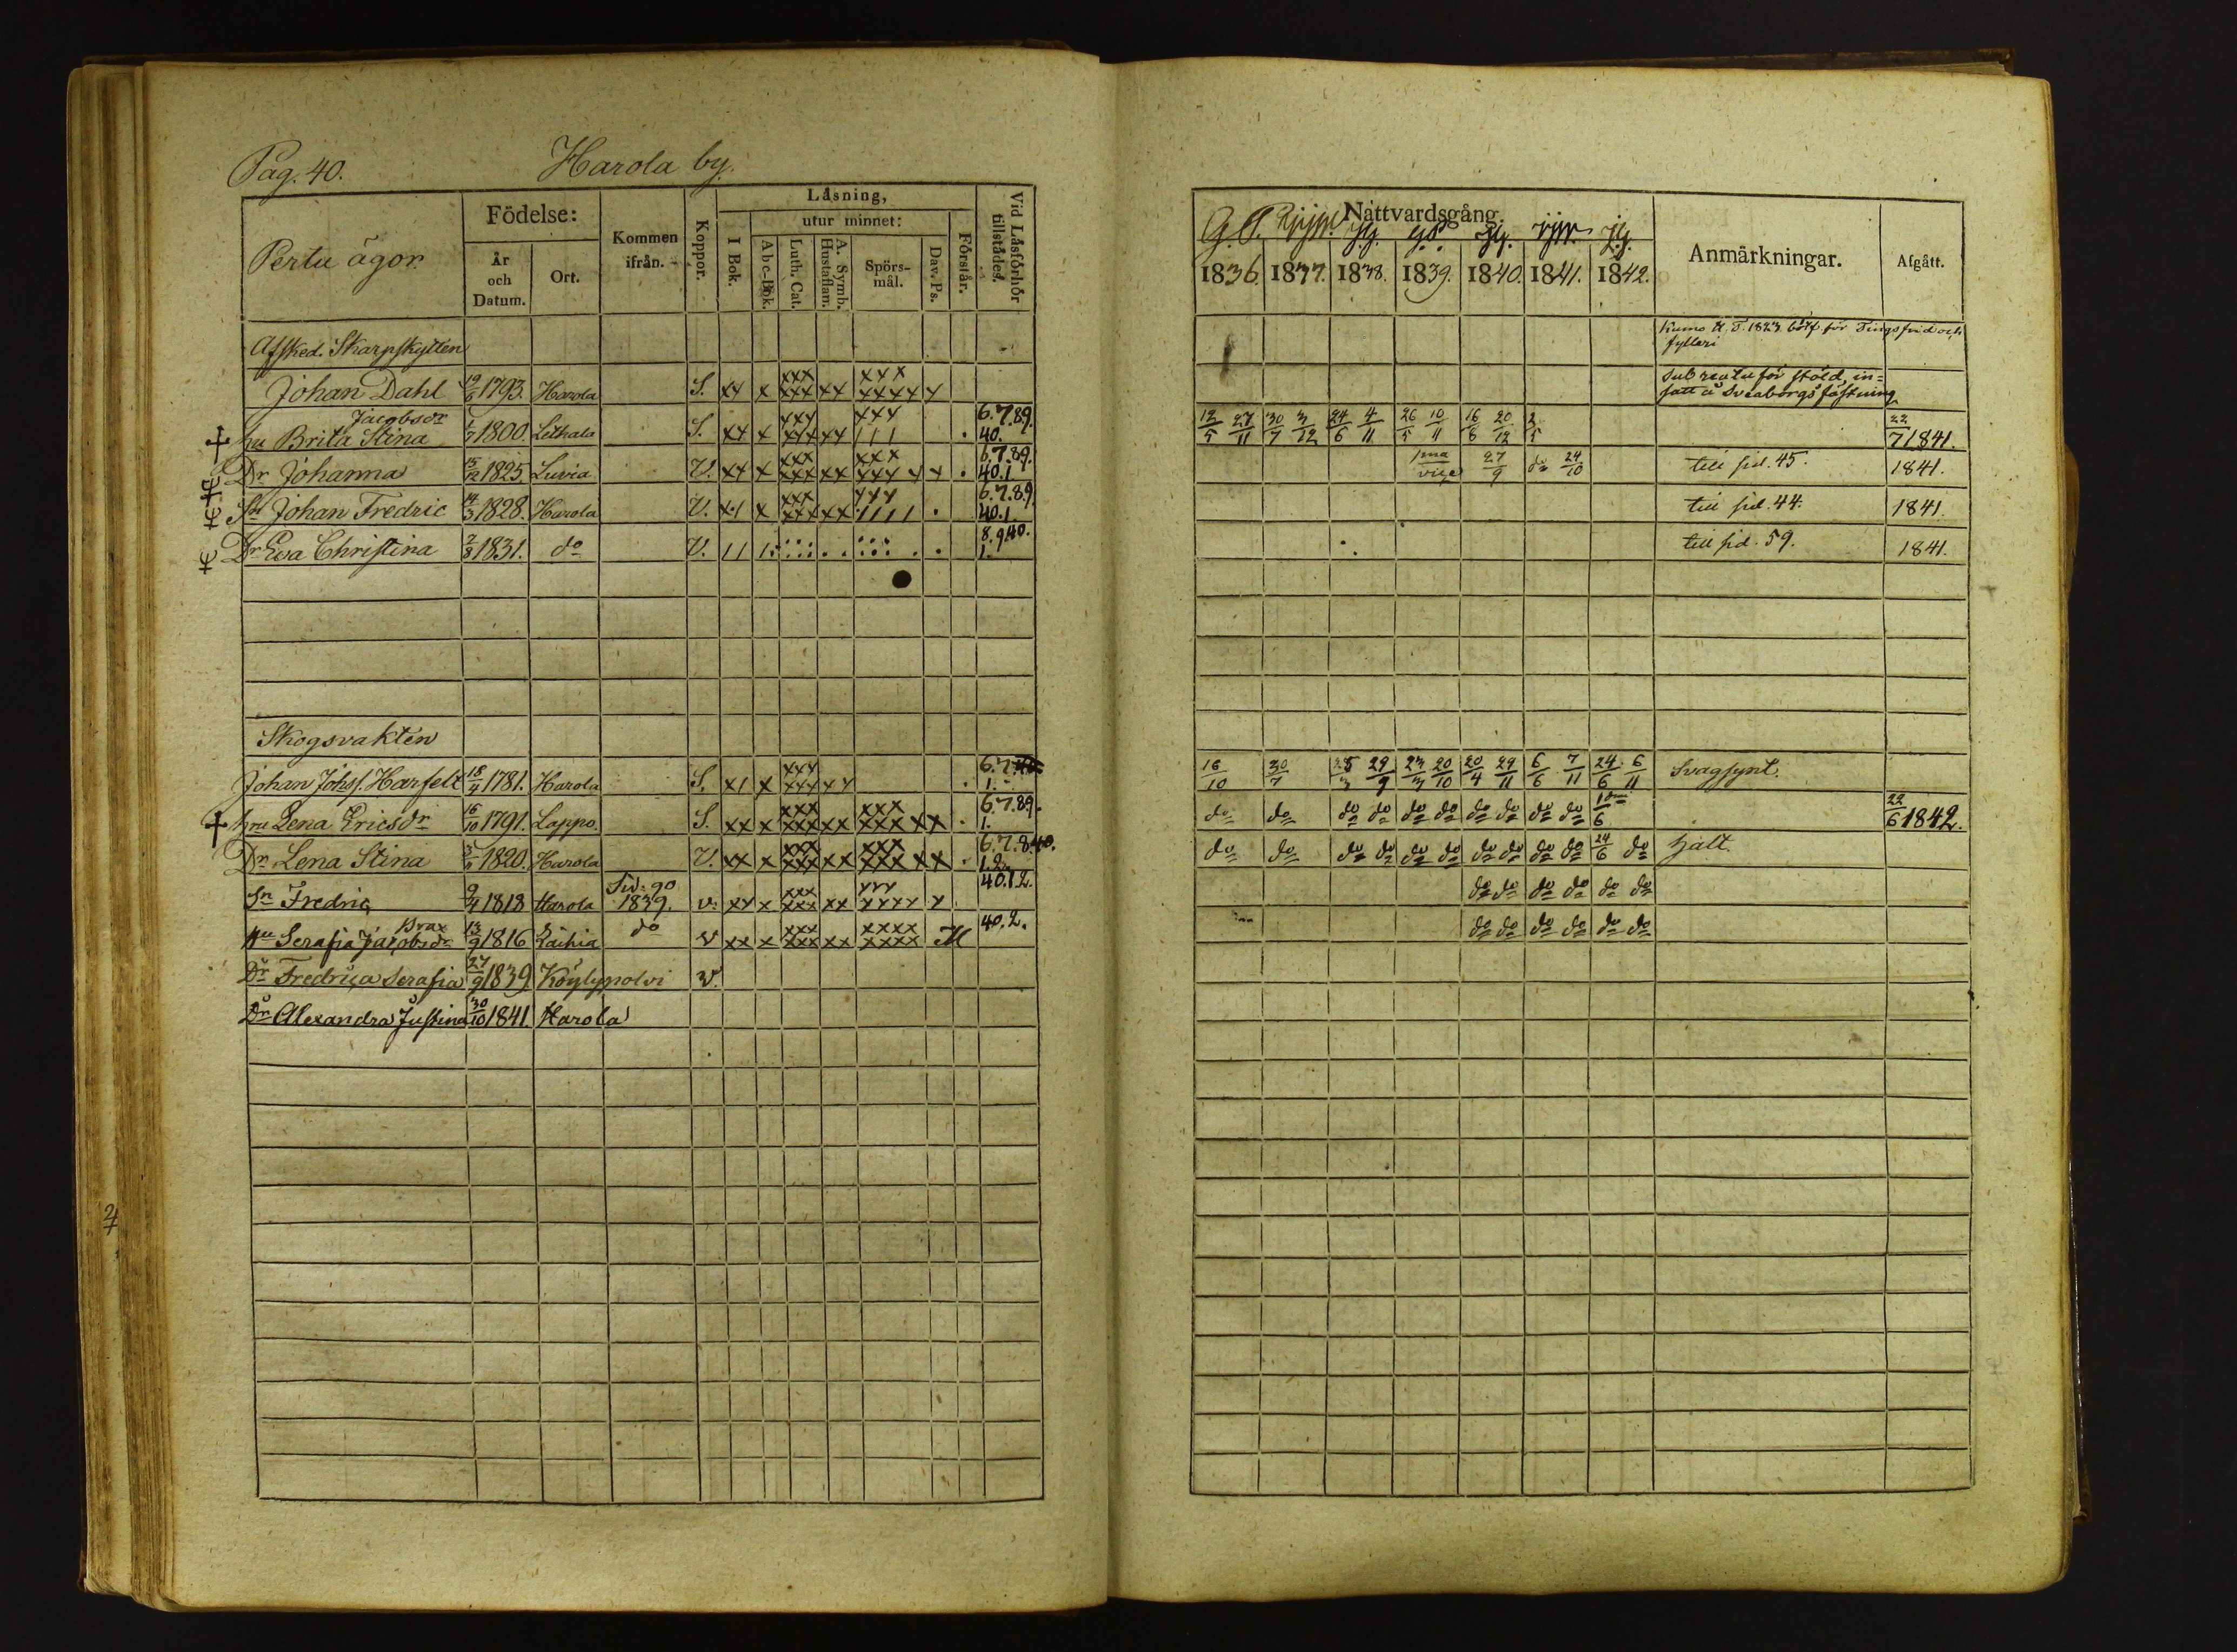 Pag. 40. Harola by.
Pertu ägor.
Födelse:
År och Datum.
Ort.
Kommen ifrån.
Koppor.
Läsning,
I Bok.
utur minnet:
Abc-Bok.
Luth. Cat.
A. Symb. Hustaflan.
Spörsmål.
Dav. Ps.
Förstår.
Vid Läsförhör tillstådes.
Afsked. Skarpskytten
Johan Dahl 19/6 1793. Harola S. xx x xxx xxx xx xxx xxxxx x
Jacobsdr
hu Brita Stina 1/7 1800 Lethala S. xx x xxx xxx xx xxx 111 . 6.7.89. 40.
Dr Johanna 15/12 1825. Luvia V. xx x xxx xxx xx xxx xxx x x . 6.7.89. 40.1.
Sn Johan Fredric 14/3 1828. Harola V. x1 x xxx xxx xx xxx 1111 . 6.7.8.9. 40.1
Dr Eva Christina 2/3 1831. do V. 11 1. 8.9.40. 1.
Skogsvakten
Johan Johss. Harfelt 18/4 1781. Harola S. x1 x xxx xxx xx . 6.7. 1.
hru Lena Ericsdr 16/10 1791. Lappo. S. xx x xxx xxx xx xxx xxx xx . 6.7.89. 1.
Dr Lena Stina 1820. Harola V. xx x xxx xxx xx xxx xxx xx . 6.7.8.40. 1.2.
Sn Fredric 9/4 1818 Harola Sid. 90 1839. v. xx x xxx xxx xx xxx xxxx x 40.1.2.
Brax
Hu Serafia Jacobsdr 13/9 1816 Laihia do v xx x xxx xxx xx xxxx xxxx M 40.2.
Dr Fredrica Serafia 27/9 1839 Köylypolvi v.
Dr Alexandra Justina 30/10 1841. Harola
Nattvardsgång.
1836. 1837. 1838. 1839. 1840. 1841. 1842.
Anmärkningar.
Afgått.
Kumo H. T. 1823. böt. för Tingsfrid och
fylleri
sub reatu för stöld, in=
satt å Sveaborgs fästning
12/5 27/11 30/7 3/12 24/6 4/11 26/5 10/11 16/8 20/12 2/5 22/7 1841.
1ma vice 27/9 do 24/10 till sid. 45. 1841.
till sid. 44. 1841.
till sid. 59. 1841.
16/10 30/7 25/3 29/9 23/3 20/10 20/4 29/11 6/6 7/11 24/6 6/11 Svagsynt.
do do do do do do do do do do 6 22/6 1842.
do do do do do do do do do do 24/6 do halt.
do do do do do do
do do do do do do